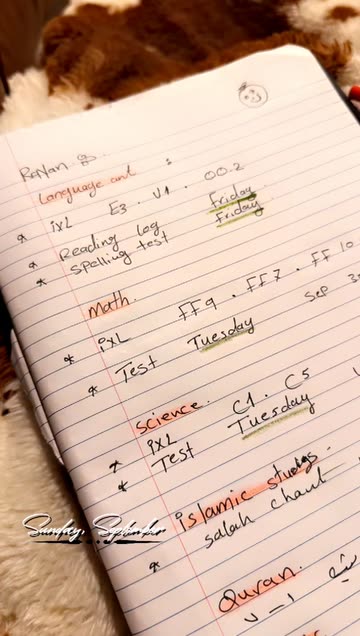 Rayan. g
Language art :
* iXL E3 . V1 . 00.2
* Reading log Friday
* Spelling test Friday
math.
* iXL FF9 . FF7 . FF 10
* Test Tuesday Sep
science.
* iXL C1 . C5
* Test Tuesday
islamic studies.
* salah chart
Quran.
Sunday, September